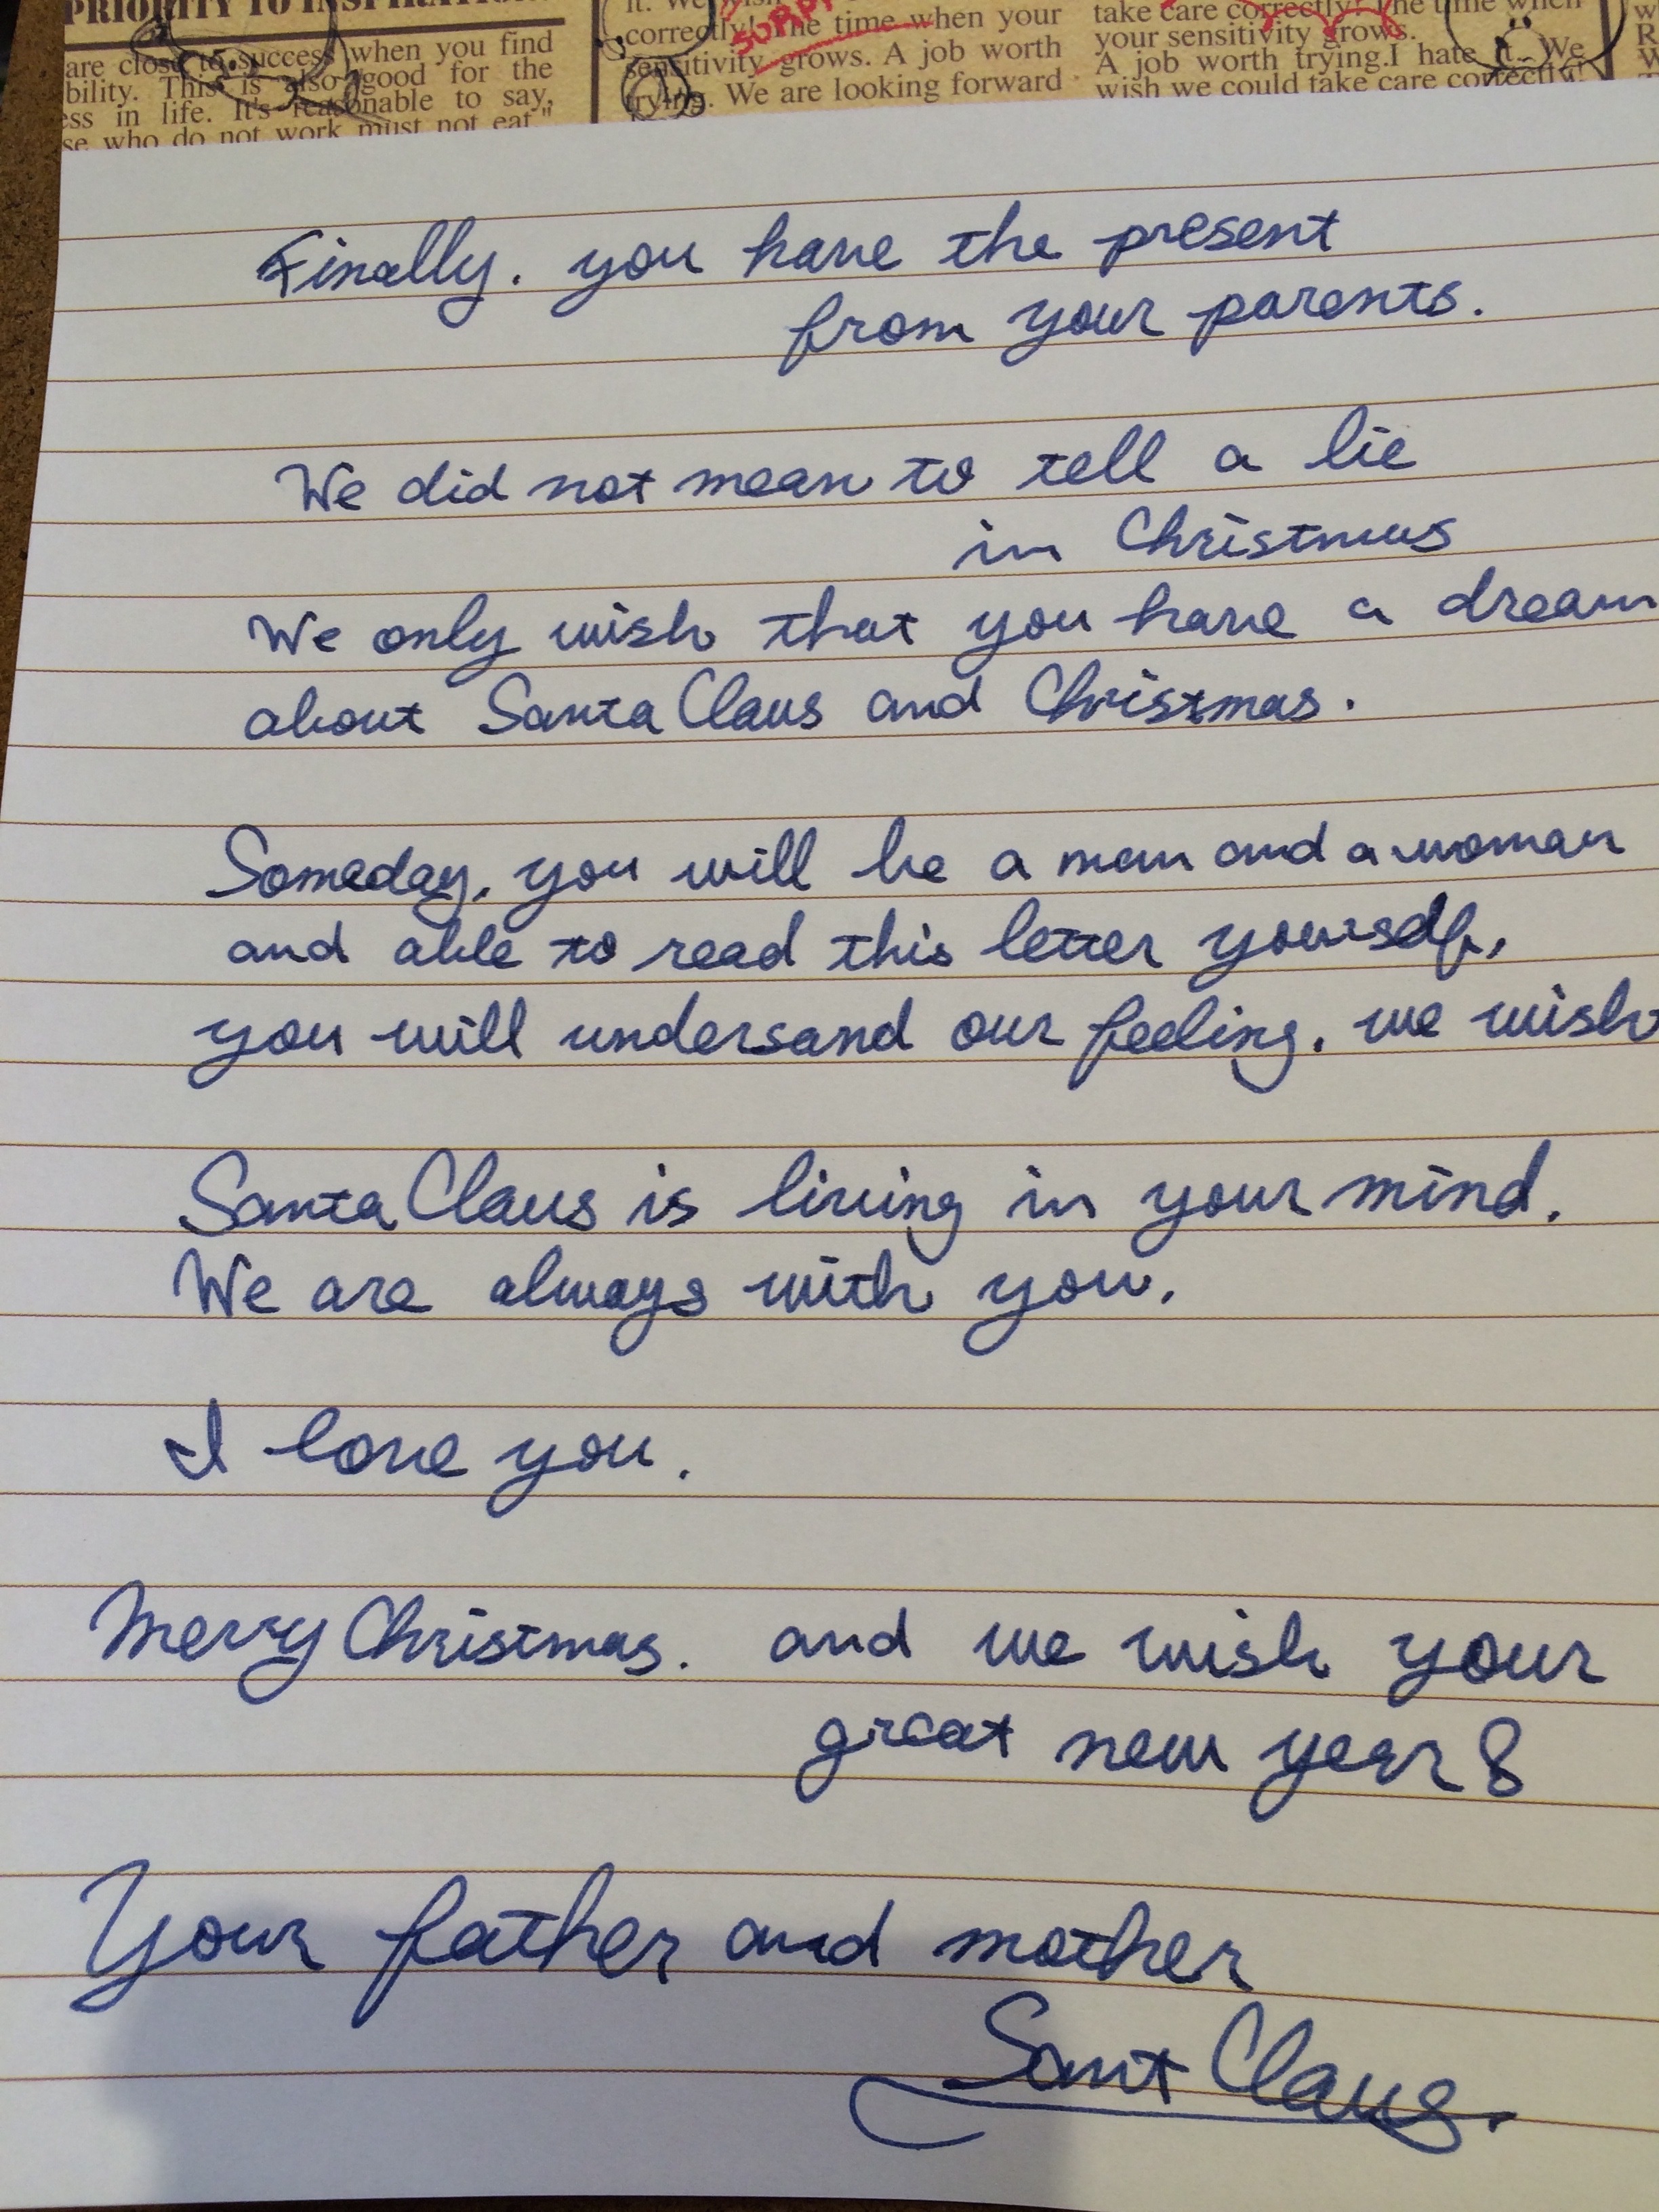 PRIORITY TO INSPIRATION
are close to success when you find
bility. This is also good for the
ess in life. It's reasonable to say,
se who do not work must not eat"
it. We
correctly! The time when your
sensitivity grows. A job worth
trying. We are looking forward
take care correctly! The time when
your sensitivity grows.
A job worth trying.I hate it. We
wish we could take care correctly!
Finally. you have the present
from your parents.
We did not mean to tell a lie
in Christmas
We only wish that you have a dream
about Santa Claus and Christmas.
Someday, you will be a man and a woman
and able to read this letter yourself,
you will undersand our feeling. we wish
Santa Claus is living in your mind.
We are always with you.
I love you.
Merry Christmas. and we wish your
great new year 8
Your father and mother
Sant Claus.